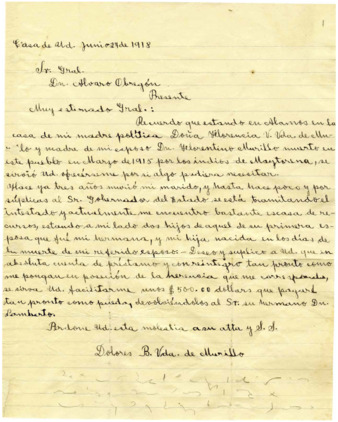 Casa de Ud. Junio 27 de 1918
Sr. Gral.
Dn. Alvaro Obregón
Presente
Muy estimado Gral.:
Recuerdo que estando en Alamos en la
casa de mi madre política Doña Florencia V. Vda. de Mu-
rillo y madre de mi esposo Dn. Florentino Murillo muerto en
este pueblo en Marzo de 1915 por los indios de Maytorena, se
sirvió Ud. ofrecerme por si algo pudiera necesitar.
Hace ya tres años murió mi marido, y hasta hace poco y por
súplicas al Sr. Gobernador del Estado se está tramitando el
intestado y actualmente me encuentro bastante escasa de re-
cursos, estando a mi lado dos hijos de aquel de su primera es-
posa, que fué mi hermana, y mi hija nacida en los días de
la muerte de mi referido esposo. Deseo y suplico a Ud. que en
absoluta cuenta de préstamo y con reintegro tan pronto como
me pongan en posición de la herencia que me corresponde,
se sirva Ud. facilitarme unos $500.00 dollars que pagaré
tan pronto como pueda, devolviéndolos al Sr. su hermano Dn.
Lamberto.
Perdone Ud. esta molestia a su atta y S. S.
Dolores B. Vda. de Murillo